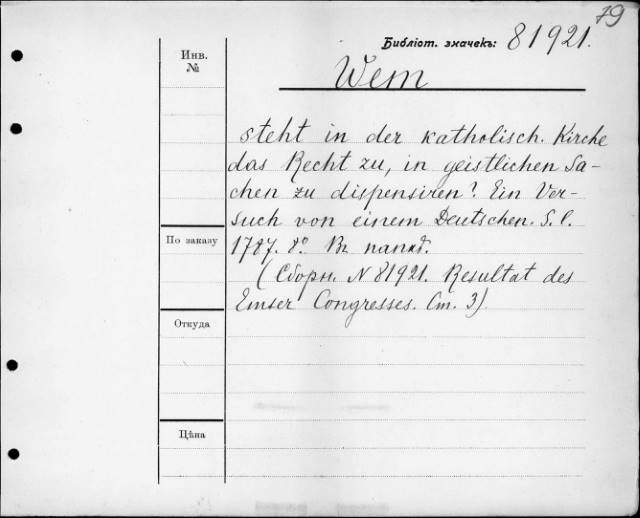 79
Библіот. значекъ: 81921.
Инв.
№
Wem
steht in der katholisch. Kirche
das Recht zu, in geistlichen Sa-
chen zu dispensiren? Ein Ver-
such von einem Deutschen. S. l.
По заказу
1787. 8°. Въ папкѣ.
(Сборн. N 81921. Resultat des
Emser Congresses. Ст. 3)
Откуда
Цѣна